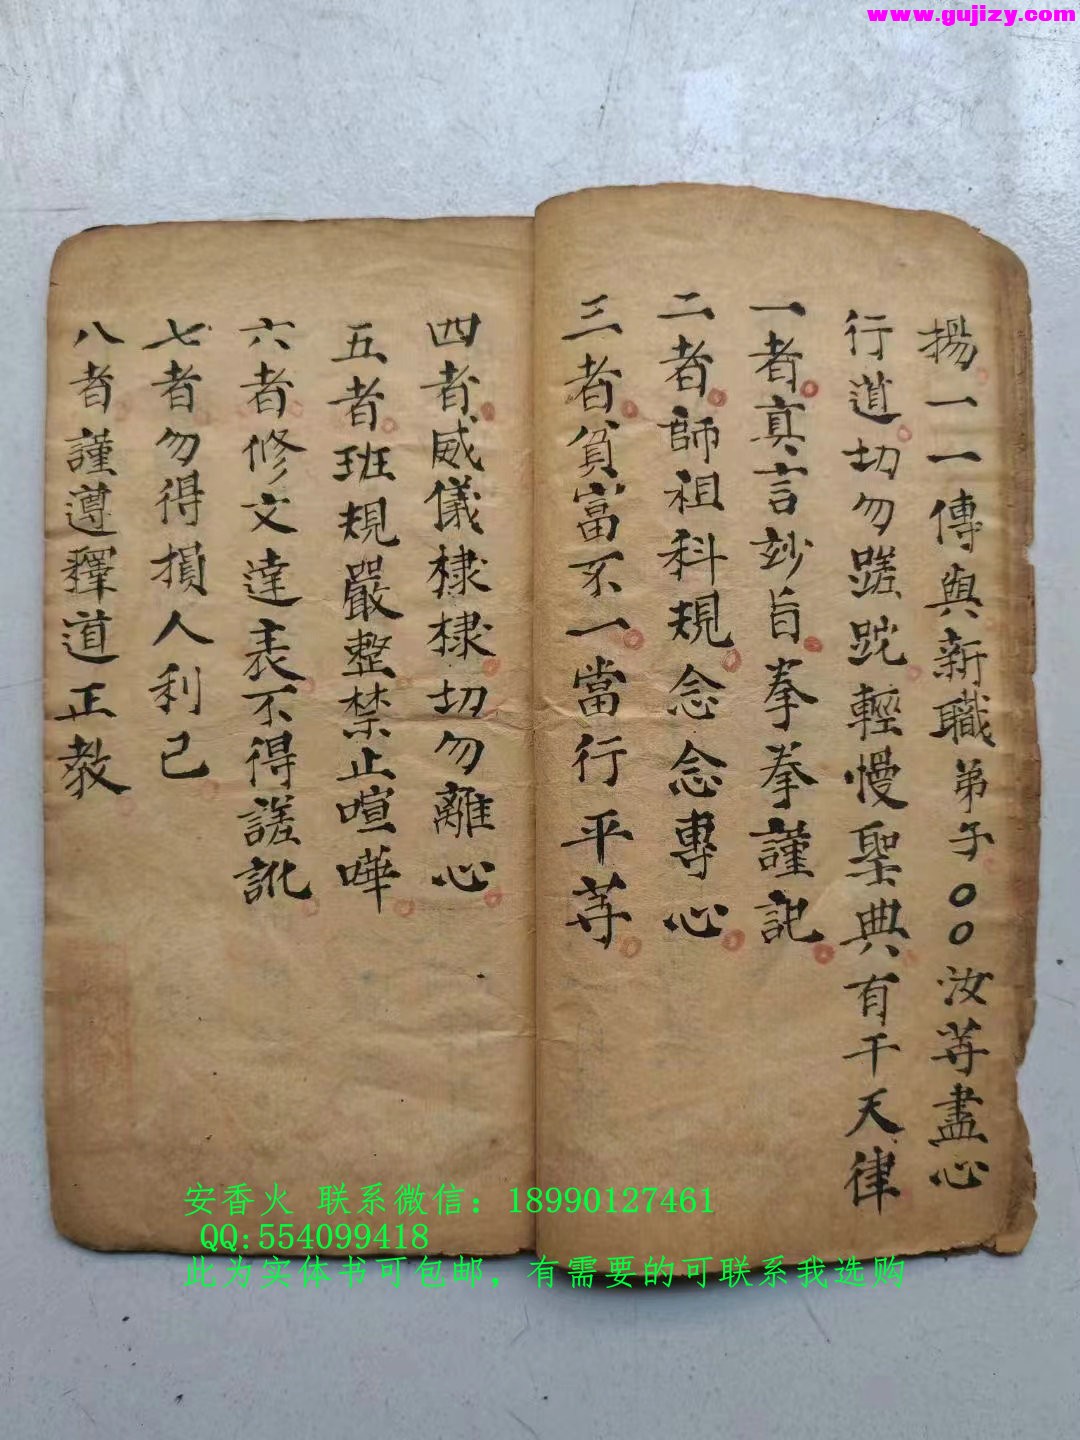 www.gujizy.com
揚一一傳與新職弟子〇〇汝等盡心
行道切勿蹉跎輕慢聖典有干天律
一者真言妙旨拳拳謹記
二者師祖科規念念專心
三者貧富不一當行平等
四者威儀棣棣切勿離心
五者班規嚴整禁止喧嘩
六者修文達表不得謰訛
七者勿得損人利己
八者謹遵釋道正教
安香火 联系微信：18990127461
QQ:554099418
此为实体书可包邮，有需要的可联系我选购